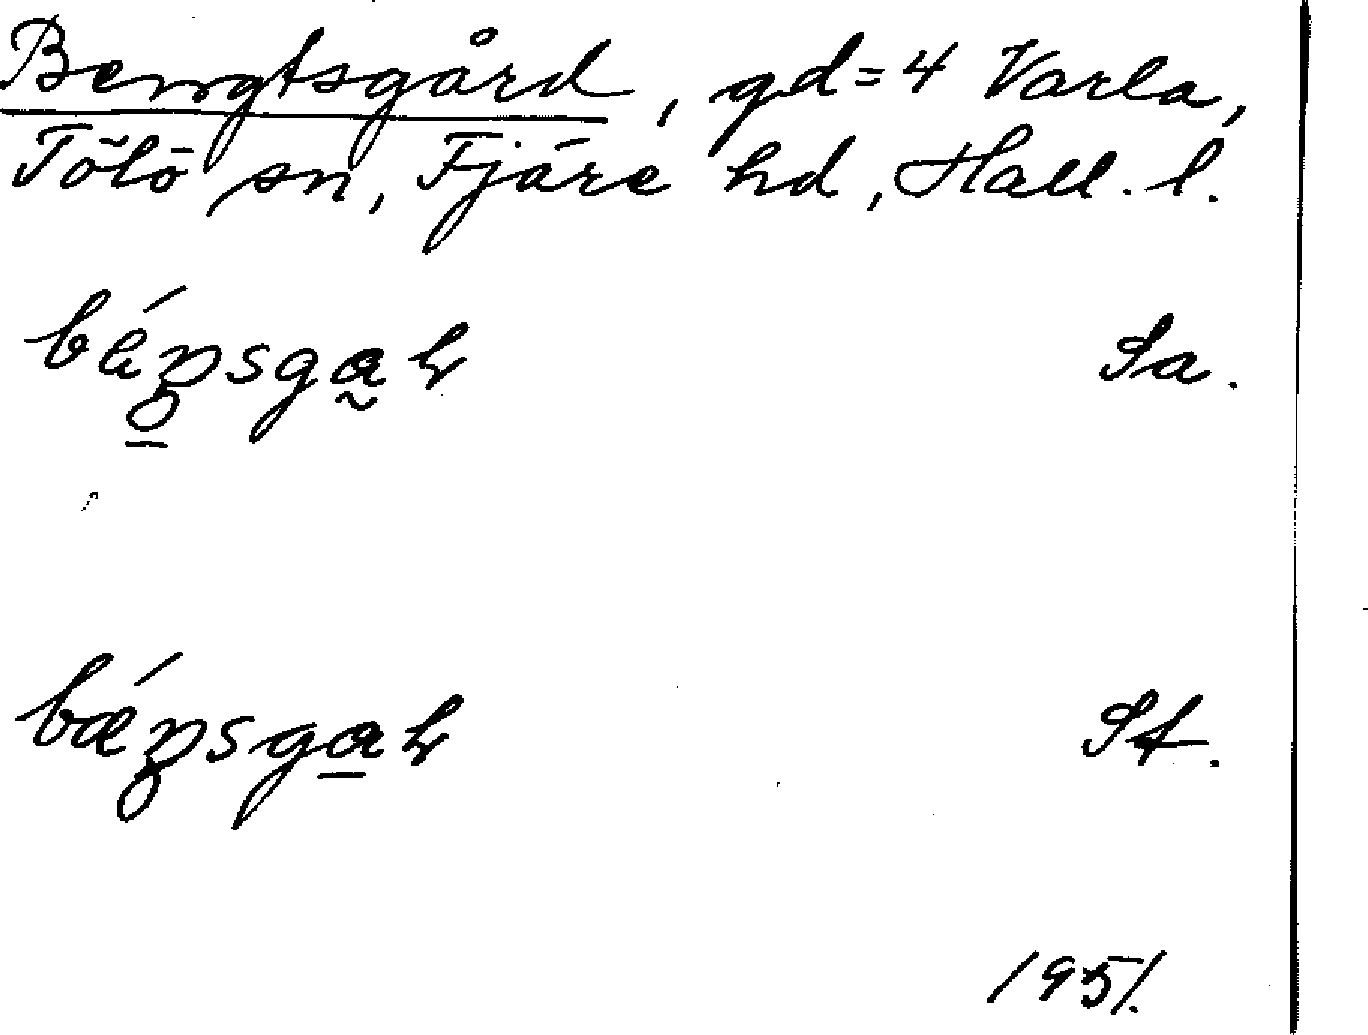 Bengtsgård, gd = 4 Varla,
Tölö sn, Fjäre hd, Hall. l.
Sa.
St.
1951.